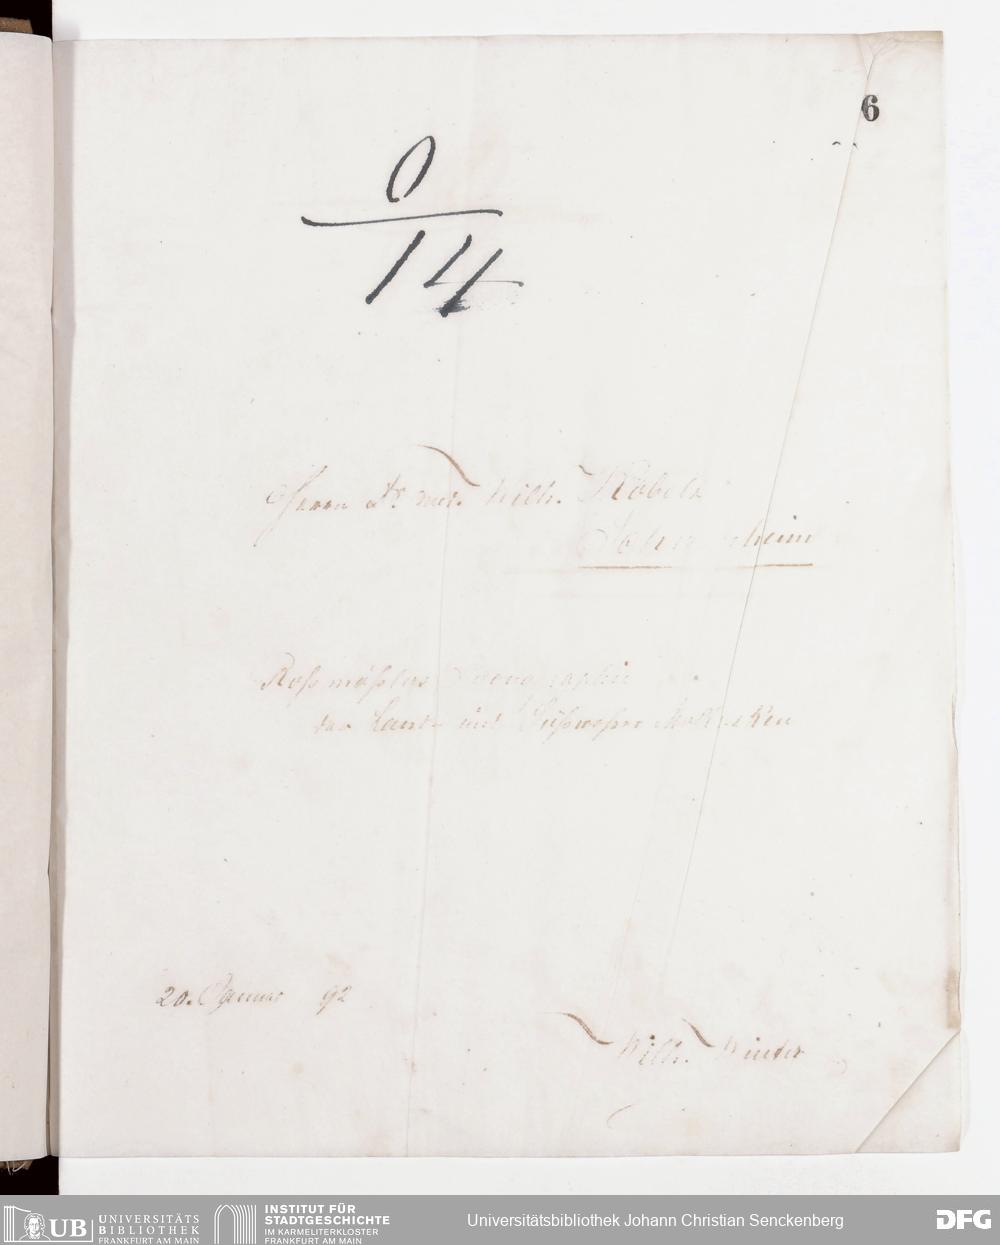 6
0
14
Herrn Dr med. Wilh. Kobelt
Schwanheim
Rossmässlers Iconographie
der Land- und Süsswasser Mollusken
20. Januar 92
Wilh. Winter
UB UNIVERSITÄTS
BIBLIOTHEK
FRANKFURT AM MAIN
INSTITUT FÜR
STADTGESCHICHTE
IM KARMELITERKLOSTER
FRANKFURT AM MAIN
Universitätsbibliothek Johann Christian Senckenberg
DFG